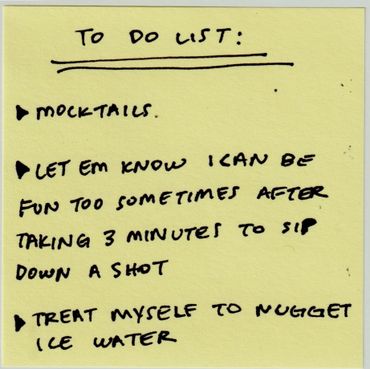 TO DO LIST:
MOCKTAILS.
LET EM KNOW I CAN BE
FUN TOO SOMETIMES AFTER
TAKING 3 MINUTES TO SIP
DOWN A SHOT
TREAT MYSELF TO NUGGET
ICE WATER